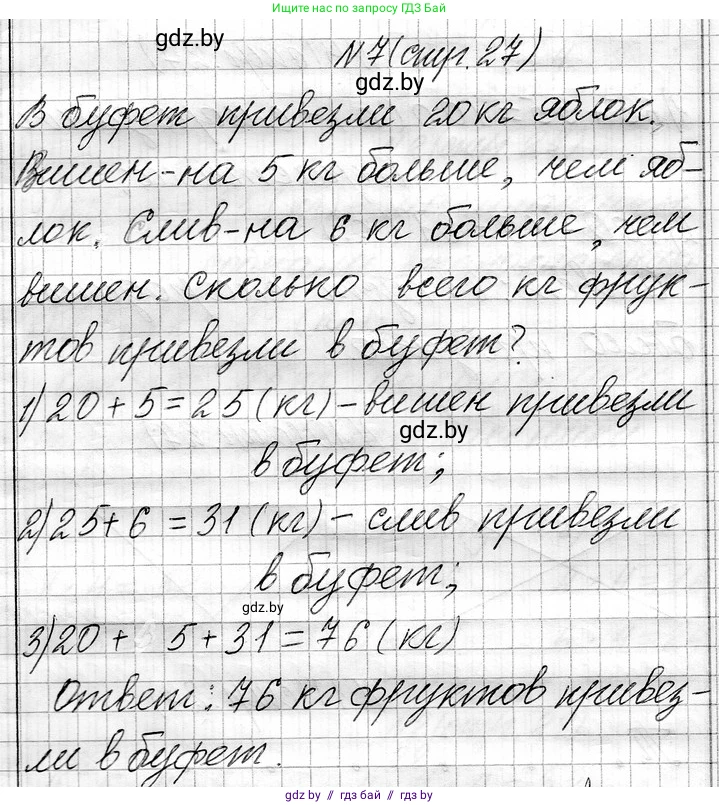 Ищите нас по запросу ГДЗ Бай
gdz.by
№7 (стр. 27)
gdz.by
В буфет привезли 20 кг яблок.
Вишен-на 5 кг больше, чем яб-
лок. Слив-на 6 кг больше, чем
вишен. Сколько всего кг фрук-
тов привезли в буфет?
1) 20 + 5 = 25 (кг) - вишен привезли
gdz.by
в буфет;
2) 25 + 6 = 31 (кг) - слив привезли
в буфет;
gdz.by
3) 20 + 5 + 31 = 76 (кг)
Ответ: 76 кг фруктов привез-
ли в буфет.
gdz.by // гдз бай // gdz.by